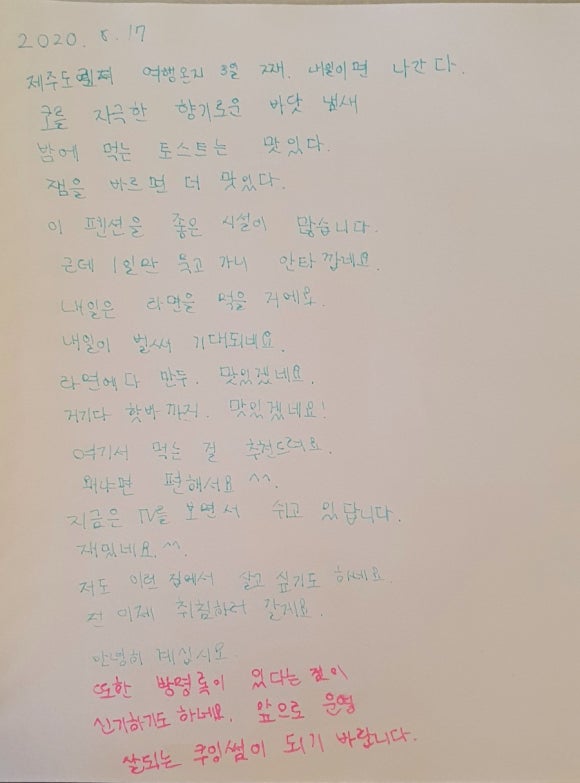 2020. 8. 17
제주도 여행온지 3일 째. 내일이면 나간다.
코를 자극한 향기로운 바닷 냄새
밤에 먹는 토스트는 맛있다.
잼을 바르면 더 맛있다.
이 펜션을 좋은 시설이 많습니다.
근데 1일만 묵고 가니 안타깝네요.
내일은 라면을 먹을 거에요.
내일이 벌써 기대되네요.
라면에다 만두. 맛있겠네요.
거기다 핫바까지. 맛있겠네요!
여기서 먹는 걸 추천드려요.
왜냐면 편해서요 ^^.
지금은 TV를 보면서 쉬고 있답니다.
재밌네요.^^
저도 이런 집에서 살고 싶기도 하네요.
전 이제 취침하러 갈게요.
안녕히 계십시요.
또한 방명록이 있다는 점이
신기하기도하네요. 앞으로 운영
잘되는 쿠잉썸이 되기 바랍니다.